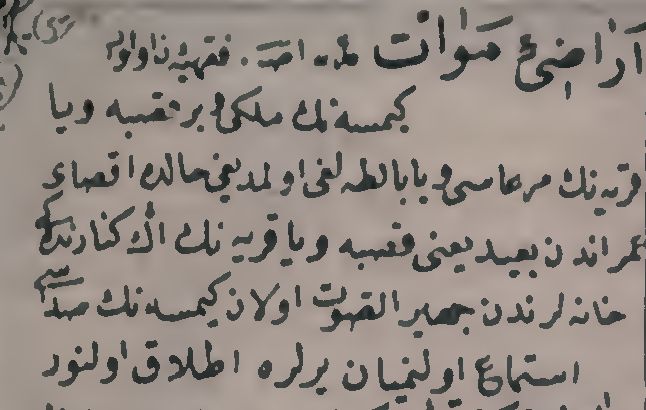 اراضیٔ موات
كیمسه نك ملكی و بر قصبه ویا
قریه نك مرعاسی ویا بالطه لغی اولمدیغی حالده اقصای
عمراندن بعید یعنی قصبه ویا قریه نك اڭ كنارنده كی
خانه لرندن جهیر الصوت اولان كیمسه نك صداسی
استماع اولنمیان یرلره اطلاق اولنور